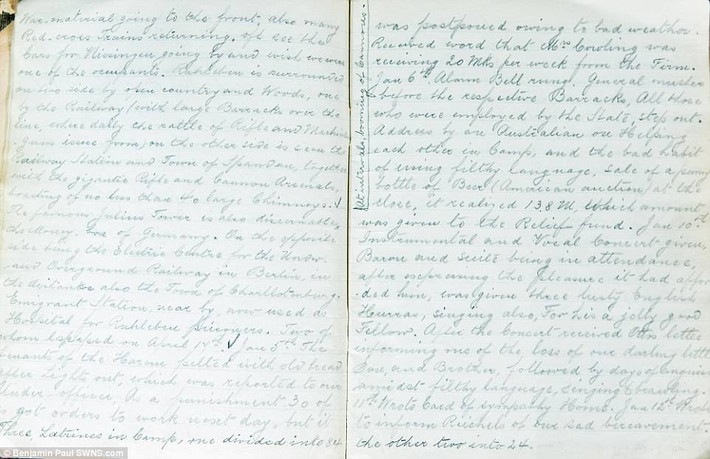 War material going to the front, also many
Red-cross Trains returning. oft see the
Cars for Vlissingen going by and wish we were
one of the occupants. Ruhleben is surrounded
on two side by open country and Woods, one
by the Railway (with large Barracks over the
line, where daily the rattle of Rifle and Machine
guns issue from) on the other side is seen the
Railway Station and Town of Spandau, together
with the gigantic Rifle and Cannon Arsenals,
boasting of no less than 40 large Chimneys.
The famous Julius Tower is also discernable,
the Money Box of Germany. On the opposite
side being the Electric Centre for the Under-
and Overground Railway in Berlin, in
the distance also the Town of Charlottenburg.
Emigrant Station, near by, now used as
Hospital for Ruhleben prisoners. Two of
whom escaped on April 14th. Jan 5th The
tenants of the Harem pelted with old bread
after Lights out, which was reported to our
Under-officer. As a punishment 30 of
us got orders to work next day, but it
Three Latrines in Camp, one divided into 84
At intervals booming of Cannons.
was postponed owing to bad weather.
Received word that Mrs Cowling was
receiving 20 Mks per week from the Firm.
Jan 6th Alarm Bell rung, General muster
before the respective Barracks, All those
who were employed by the State, step out.
Address by an Australian on Helping
each other in Camp, and the bad habit
of using filthy language, Sale of a
bottle of Beer (American auction) at the
close, it realized 138 M, which amount
was given to the Relief fund. Jan 10th
Instrumental and Vocal Concert given,
Baron and Suite being in attendance,
after expressing the pleasure it had affor-
ded him, was given three lusty English
Hurras, singing also, For his a jolly good
Fellow. After the Concert received letter
informing me of the loss of our darling little
Son, and Brother, followed by days of anguish
amidst filthy language, singing & brawling.
11th Wrote Card of sympathy Home. Jan 12th Wrote
to inform of our sad bereavement.
the other two into 24.
© Benjamin Paul SWNS.com